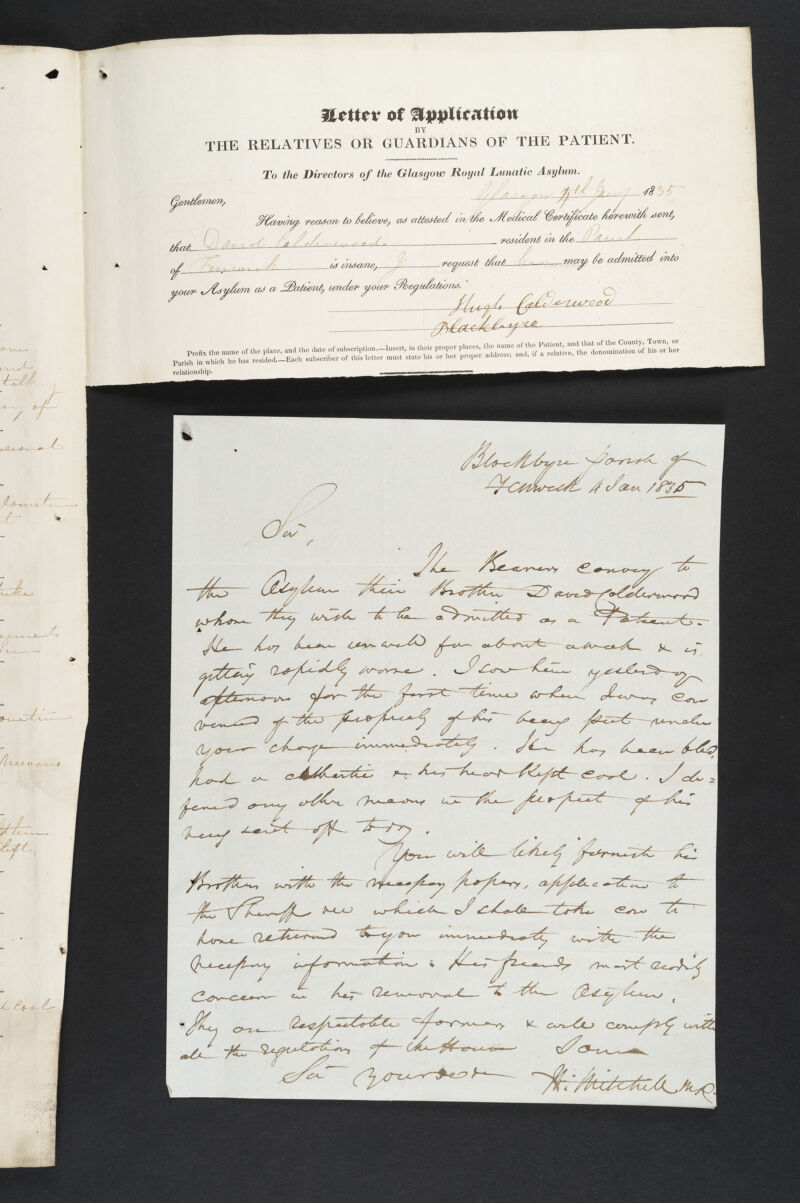 Letter of Application
BY
THE RELATIVES OR GUARDIANS OF THE PATIENT.
To the Directors of the Glasgow Royal Lunatic Asylum.
Glasgow 4th Jany 1835
Gentlemen,
Having reason to believe, as attested in the Medical Certificate herewith sent,
that David Calderwood resident in the Parish
of Fenwick is insane, I request that he may be admitted into
your Asylum as a Patient, under your Regulations.
Hugh Calderwood
Blackbyre
Prefix the name of the place, and the date of subscription.—Insert, in their proper places, the name of the Patient, and that of the County, Town, or
Parish in which he has resided.—Each subscriber of this letter must state his or her proper address; and, if a relative, the denomination of his or her
relationship.
Blackbyre parish of
Fenwick 4 Jan 1835
Sir,
The Bearers convey to
the Asylum their Brother David Calderwood
whom they wish to be admitted as a Patient.
He has been unwell for about a week & is
getting rapidly worse. I saw him yesterday
afternoon for the first time when I was con
vinced of the propriety of his being put under
your charge immediately. He has been bled,
had a cathartic & his head kept cool. I de=
ferred any other means in the prospect of his
being sent off today.
You will likely furnish his
Brothers with the necessary papers, application to
the Sheriff &c which I shall take care to
have returned to you immediately with the
necessary information. His friends most readily
concur in his removal to the Asylum.
They are respectable farmers & will comply with
all the regulations of the House I am
Sir yours &c &c
talk
of
Nervous
left